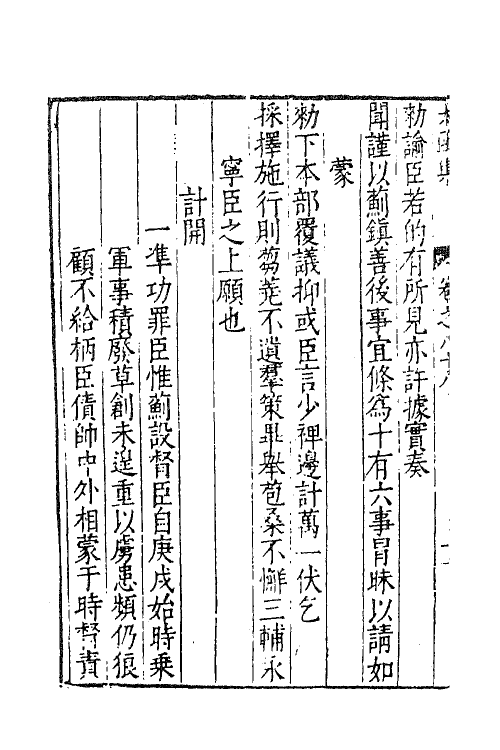 勑諭臣若的有所見亦許據實奏
聞謹以薊鎮善後事宜條為十有六事冐昧以請如
蒙
勑下本部覆議抑或臣言少裨邊計萬一伏乞
採擇施行則芻蕘不遺羣策畢舉苞桑不懈三輔永
寧臣之上願也
計開
一準功罪臣惟薊設督臣自庚戌始時乗
軍事積廢草創未遑重以虜患頻仍狼
顧不給柄臣債帥中外相蒙于時督責